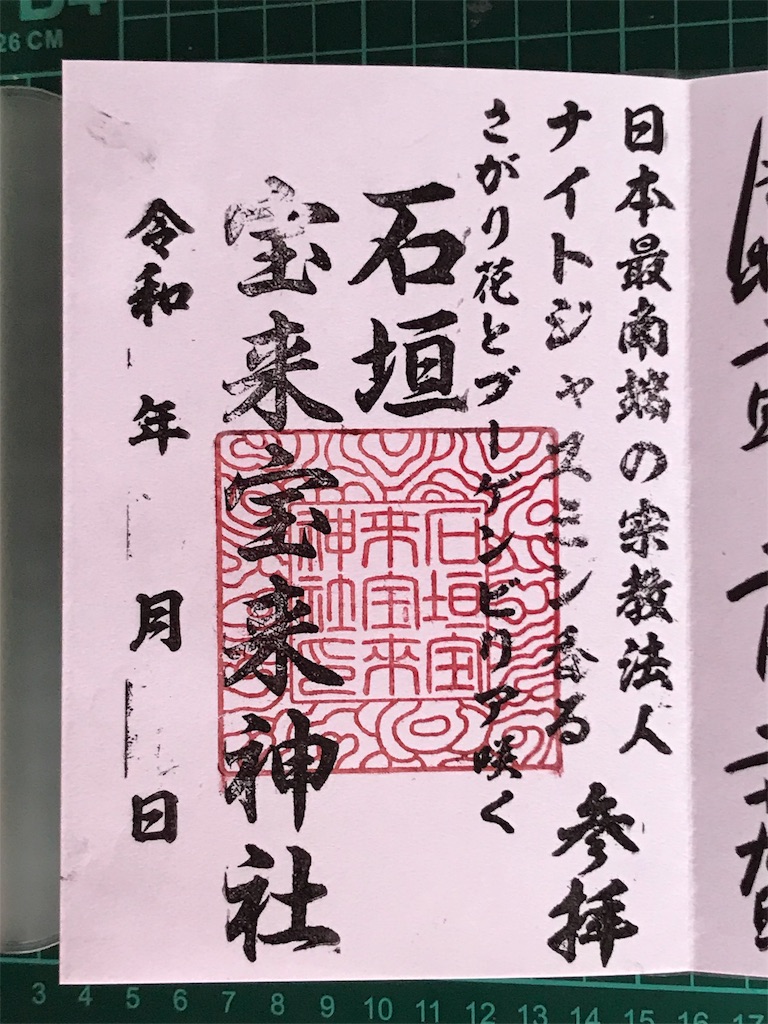 日本最南端の宗教法人
ナイトジャスミン香る
さがり花とブーゲンビリア咲く
参拝
石垣
宝来宝来神社
令和 年 月 日
石垣宝
来宝来
神社印
26 CM
3 4 5 6 7 8 9 10 11 12 13 14 15 16 17